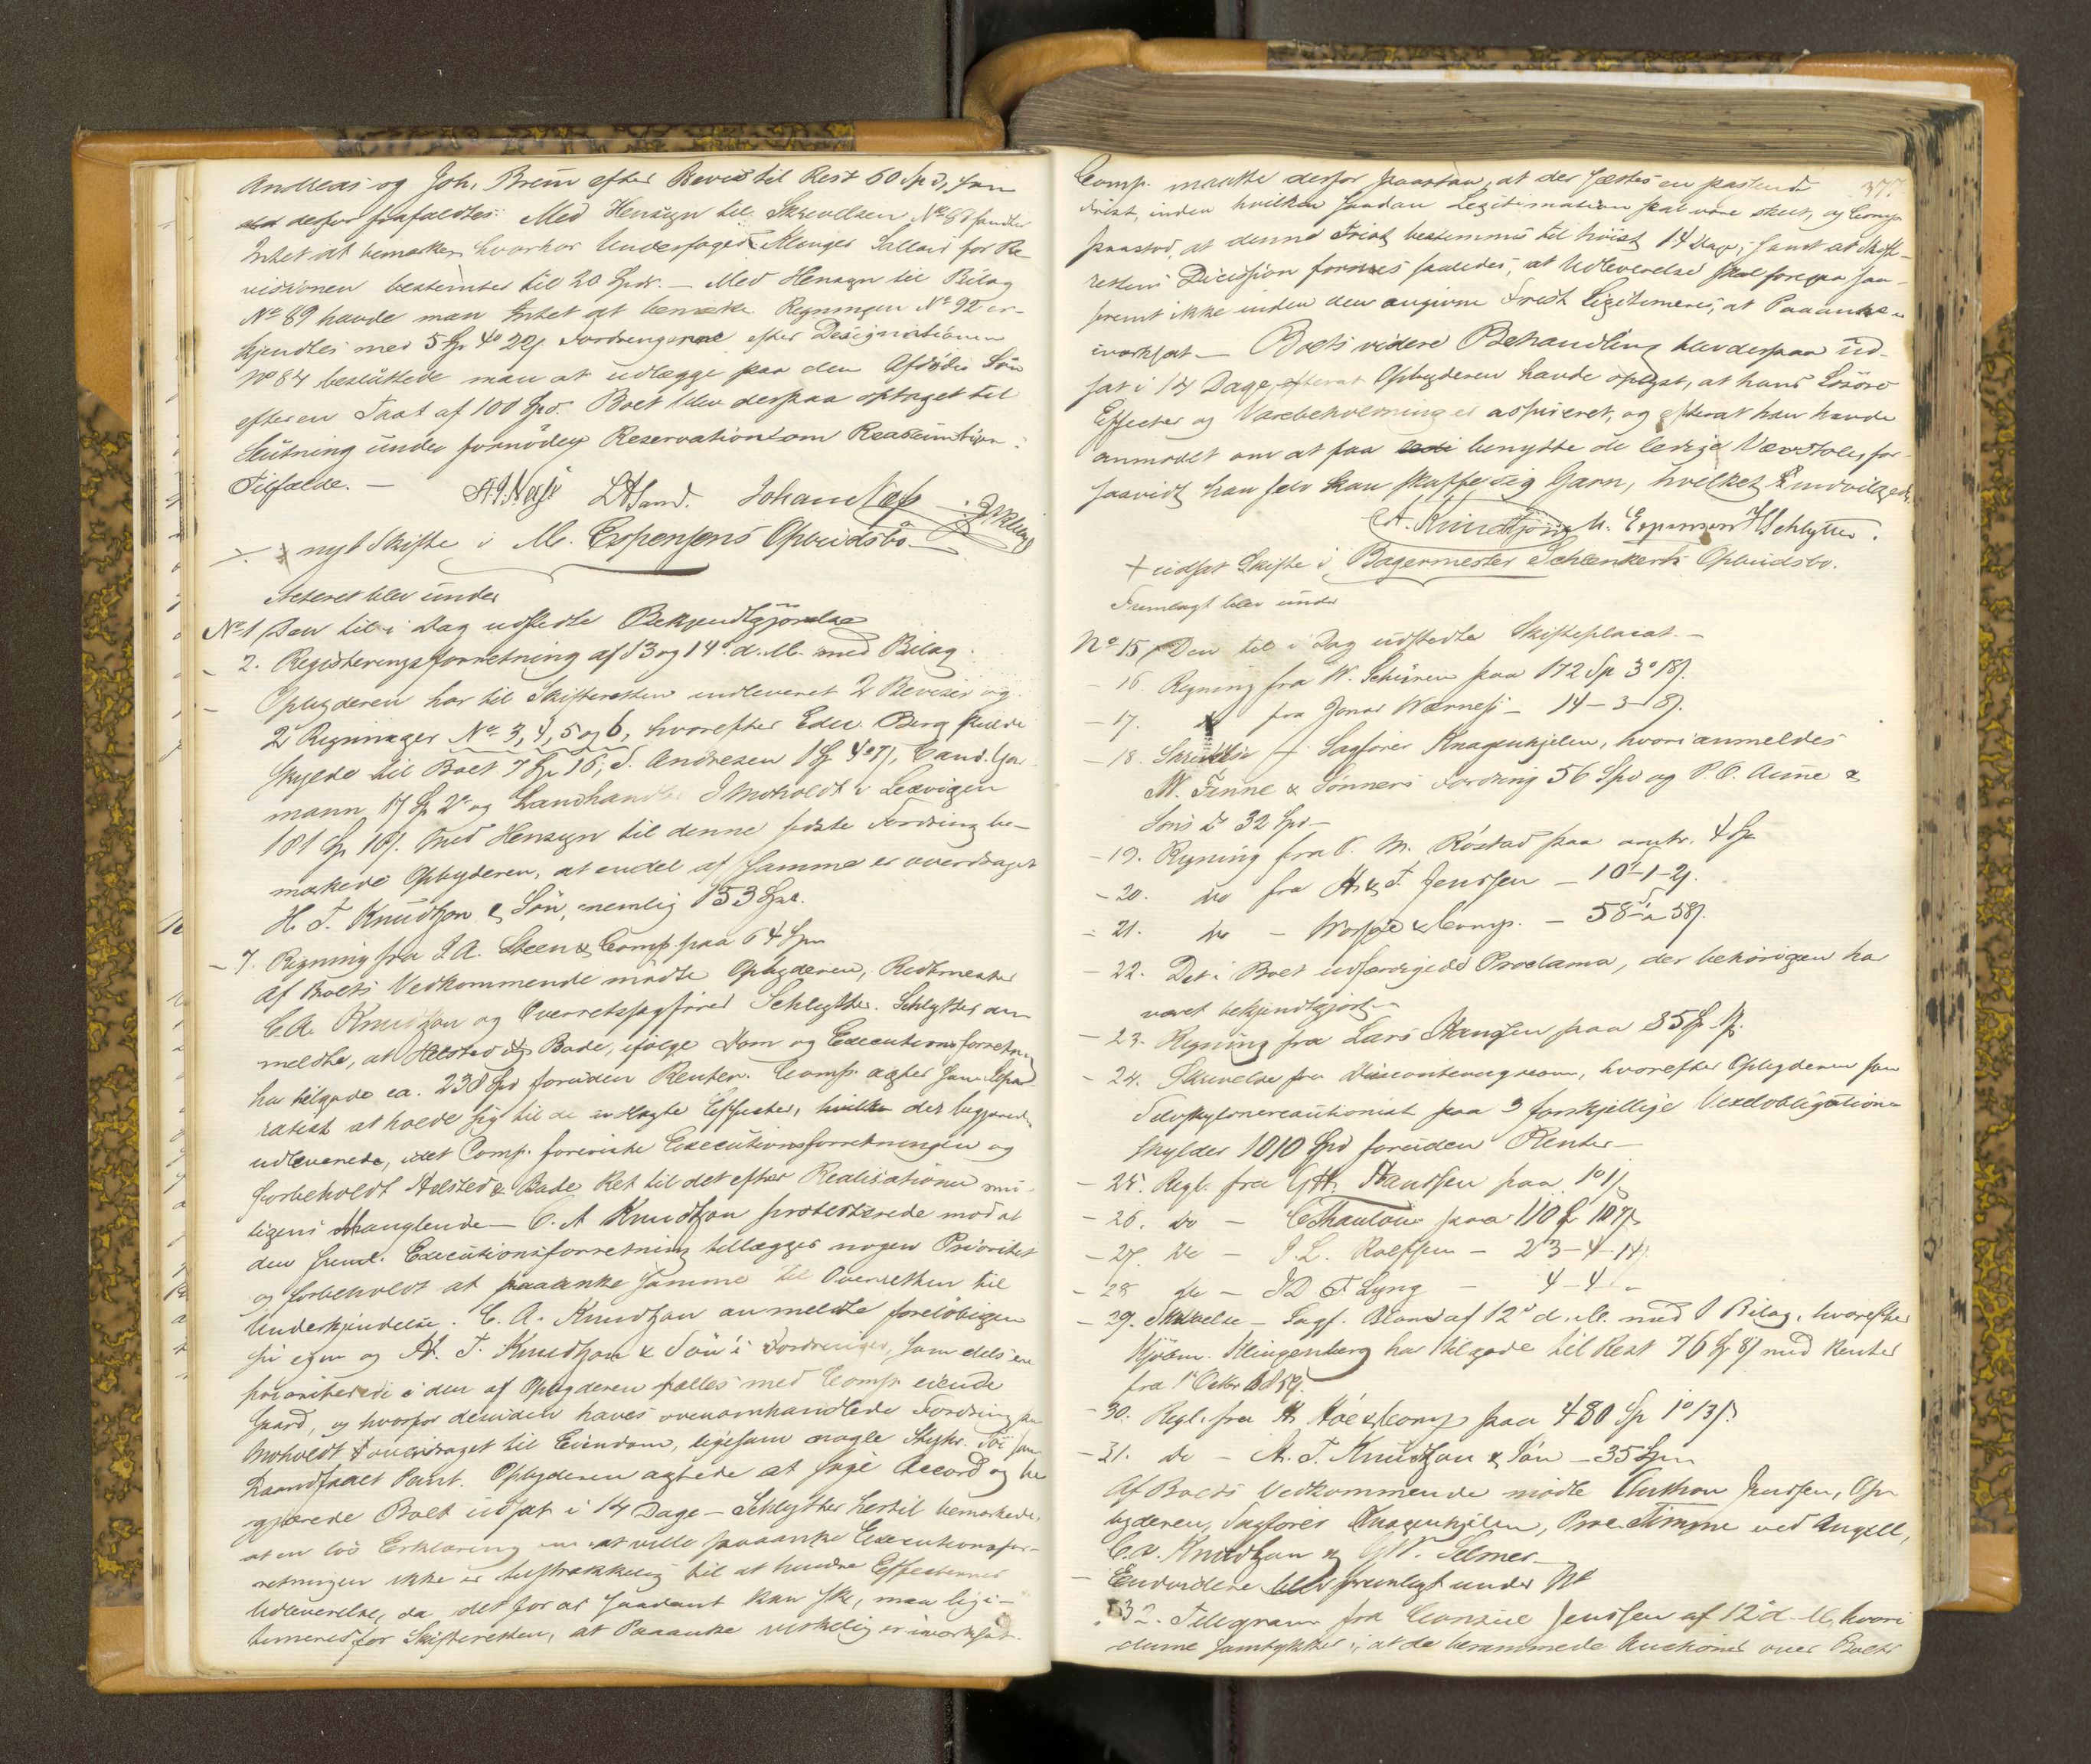 Andreas og Joh. Brun efter Bevis til Rest 60 Spd, som
derfor frafaldtes. Med Hensyn til Skrivelsen No 88 fandtes
Intet at bemærke, hvorhos Undersaged Klinges Sallair for Re-
visionen bestemtes til 20 Spdr. — Med Hensyn til Bilag
No 89 havde man Intet at bemærke. Regningen No 92 er-
kjendtes med 5 Sp 4o 22 s. Fordringerne efter Designationen
No 84 besluttede man at udlægge paa den Afdødes Søn
efter en Taxt af 100 Spd. Boet blev derpaa optaget til
Slutning under fornøden Reservation om Reasumtion i
Tilfælde. —
LHSand. Johan
nyt Skifte i M. Espensens Opbudsbo.
Acteret blev under
No 1 Den til i Dag udstedte Bekjendtgjørelse
- 2. Registeringsforretning af 13 og 14o d. M. med Bilag.
- Opbyderen har til Skifteretten indleveret 2 Beviser og
2 Regninger No 3, 4, 5 og 6, hvorefter Edv. Berg skulde
skylde til Boet 7 Sp 16 s, S. Andresen 1 Sp 4o 7 s, Cand.
mann 17 Sp 2o og Landhandler J Moholdt i Ledvigen
181 Sp 18 s. Med Hensyn til denne sidste Fordring be-
mærkede Opbyderen, at endel af samme er overdraget
H. T. Knudtzon & Søn, nemlig 153 Spd.
- 7. Regning fra I. A. Steen & Comp. paa 64 Spd
Af Boets Vedkommende mødte Opbyderen, Redtmester
C. A. Knudtzon og Overretssagfører Schlytter. Schlytter an-
meldte, at Halsted & Bade, ifølge Dom og Executionsforretning
har tilgode ca. 238 Spd foruden Renter. Comp. agter som Sepa-
ratist at holde sig til de udlagte Effecter, hvilke des begjæredes
udleverede, idet Comp. foreviste Executionsforretningen og
forbeholdt Halsted & Bade Ret til det efter Realisationen mu-
ligens Manglende — C. A Knudtzon protesterede mod at
den fremll. Executionsforretning tillægges nogen Prioritet
og forbeholdt at paaanke samme til Overretten til
Underkjendelse. C. A. Knudtzon anmeldte foreløbigen
sin egen og H. T. Knudtzon & Søn's Fordringer, som dels ere
prioriterede i den af Opbyderen fælles med Comp. eiende
Gaard, og hvorfor desuden haves ovenomhandlede Fordring paa
Moholdt overdraget til Eiendom, ligesom nogle Stykr. Tøi som
haandfaaet Pant. Opbyderen agtede at søge Accord og be-
gjærede Boet udsat i 14 Dage — Schlytter hertil bemærkede,
at en løs Erklæring om at ville paaanke Executionsfor-
retningen ikke er tilstrækkelig til at hindre Effecternes
Udleverelse, da det for at saadant kan ske, maa legi-
timeres for Skifteretten, at Paaanke virkelig er iværksat.
377.
Comp. maatte derfor paastaa, at der sættes en passende
Frist, inden hvilken saadan Legitimation skal være skeet, og Comp
paastod, at denne Frist bestemmes til høist 14 Dage, samt at Skift-
rettens Decission formes saaledes, at Udleverelse skal foregaa saa-
fremt ikke inden den angivne Frist legitimeres, at Paaanke er
iværksat. — Boets videre Behandling blev derpaa ud-
sat i 14 Dage, efterat Opbyderen havde oplyst, at hans Løsøre
Effecter og Varebeholdning er assureret, og efterat han havde
anmodet om at faa benytte de ledige Vævstole, for-
saavidt han selv kan skaffe sig Garn, hvilket indvilgedes.
CA. Knudtzon M. Espensen HSchlytter.
udsat Skifte i Bagermester Schlenkerts Opbudsbo.
Fremlagt blev under
No 15, Den til i Dag udstedte Skifteplacat. —
- 16. Regning fra W. Schüren paa 172 Sp 3o 18 s.
- 17. do fra Jonas Wærnes - 14 - 3 - 8 s.
- 18. Skrivelse f. Sagfører Knagenhjelm, hvori anmeldes
M. Finne & Sønners Fordring 56 Spd og P. O. Aune &
Søns do 32 Spd —
- 19. Regning fra O. M. Røstad paa omtr. 4 Sp
- 20. do fra H & F Jenssen - 10 - 1 - 2 s.
- 21. do - & Comp. - 58 - " 58 s.
- 22. Det i Boet udfærdigede Proclama, der behørigen har
været bekjendtgjort —
- 23. Regning fra Lars Hansen paa 35 Sp
- 24. Skrivelse fra Discontenngscom., hvorefter Opbyderen som
Selvskyldnercautionist paa 3 forskjellige Vexelobligationer
skylder 1010 Spd foruden Renter —
- 25. Regl. fra Hanssen paa 1o 1 s
- 26. do - CThaulow paa 110 Sp 10 s
- 27. do - J. L. Rolfsen - 23 - 4 - 14 s
- 28 do - ID F Lyng - 4 - 4 - "
- 29. Skrivelse - Sagf. Blom af 12o d. M. med 1 Bilag, hvorefter
Kjøbm. Klingenberg har tilgode til Rest 76 Sp 8 s med Renter
fra 1o Octbr 1859.
- 30. Regl. fra H. Høe & Comp paa 480 Sp 1o 13 s.
- 31. do - H. T. Knudtzon & Søn - 35 Spd
Af Boets Vedkommende mødte Anthon Jenssen, Op-
byderen, Sagfører Knagenhjelm, Proc. Timme ved Angell,
C. A. Knudtzon og Selmer —
- Endvidere blev fremlagt under No
- 32. Telegram fra Consul Jenssen af 12o d. M, hvori
denne samtykker i, at de berammede Auctioner over Boets